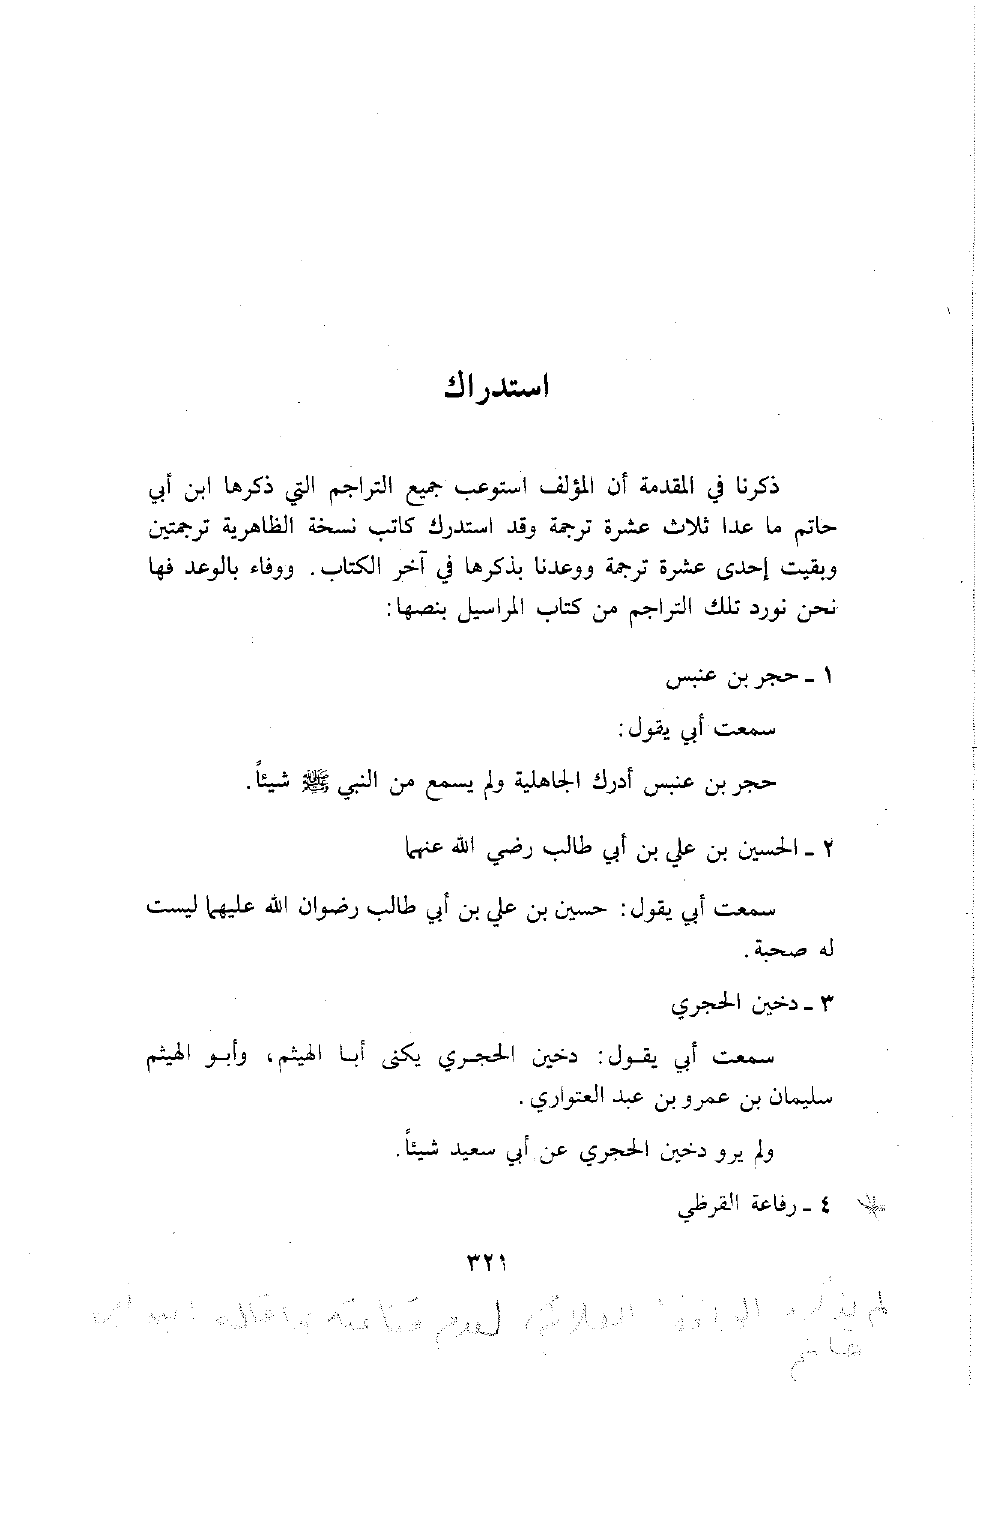 استدراك
ذكرنا في المقدمة أن المؤلف استوعب جميع التراجم التي ذكرها ابن أبي
حاتم ما عدا ثلاث عشرة ترجمة وقد استدرك كاتب نسخة الظاهرية ترجمتين
وبقيت إحدى عشرة ترجمة ووعدنا بذكرها في آخر الكتاب. ووفاء بالوعد فها
نحن نورد تلك التراجم من كتاب المراسيل بنصها:
١ ـ حجر بن عنبس
سمعت أبي يقول:
حجر بن عنبس أدرك الجاهلية ولم يسمع من النبي ﷺ شيئاً.
٢ ـ الحسين بن علي بن أبي طالب رضي الله عنهما
سمعت أبي يقول: حسين بن علي بن أبي طالب رضوان الله عليهما ليست
له صحبة.
٣ ـ دخين الحجري
سمعت أبي يقول: دخين الحجري يكنى أبا الهيثم، وأبو الهيثم
سليمان بن عمرو بن عبد العتواري.
ولم يرو دخين الحجري عن أبي سعيد شيئاً.
٤ ـ رفاعة القرظي
٣٢١
لم يذكره العلائي لعدم قناعته
حاتم